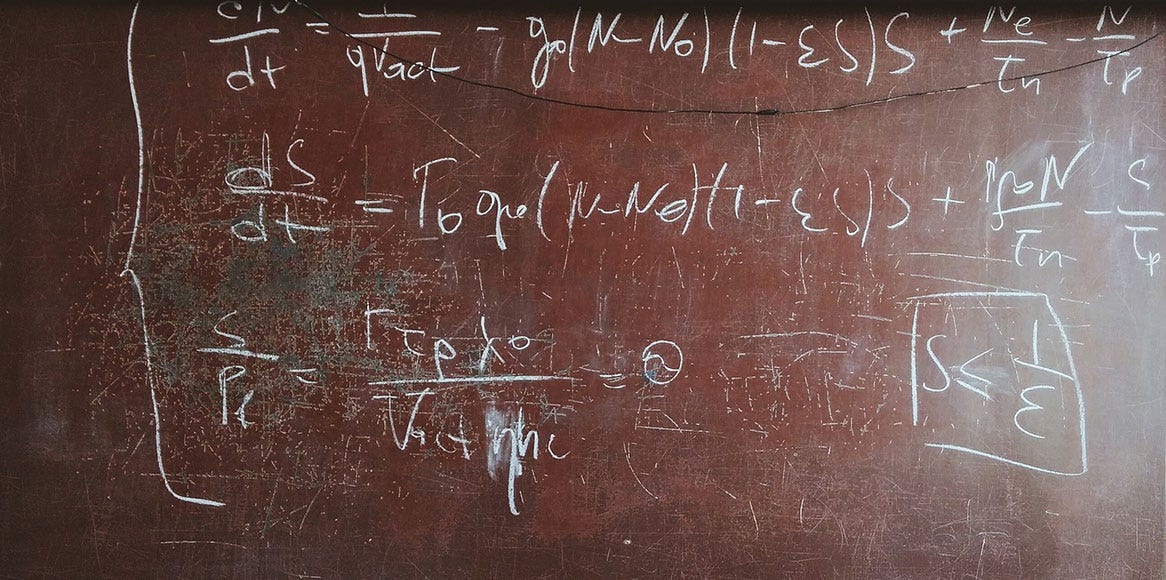 dN/dt = I/qVact - g₀(N-N₀)(1-εS)S + Ne/τn - N/τp
dS/dt = Γ₀g₀(N-N₀)(1-εS)S + N/τn - S/τp
S/Pf = Γτpλ₀/Vactηhc = ②
S ≤ 1/ε